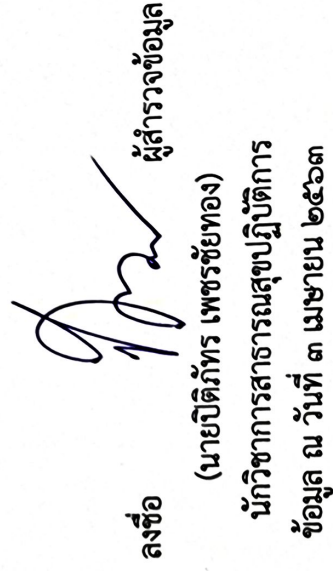 ลงชื่อ ผู้สำรวจข้อมูล
(นายปิติภัทร เพชรชัยทอง)
นักวิชาการสาธารณสุขปฏิบัติการ
ข้อมูล ณ วันที่ ๓ เมษายน ๒๕๖๓